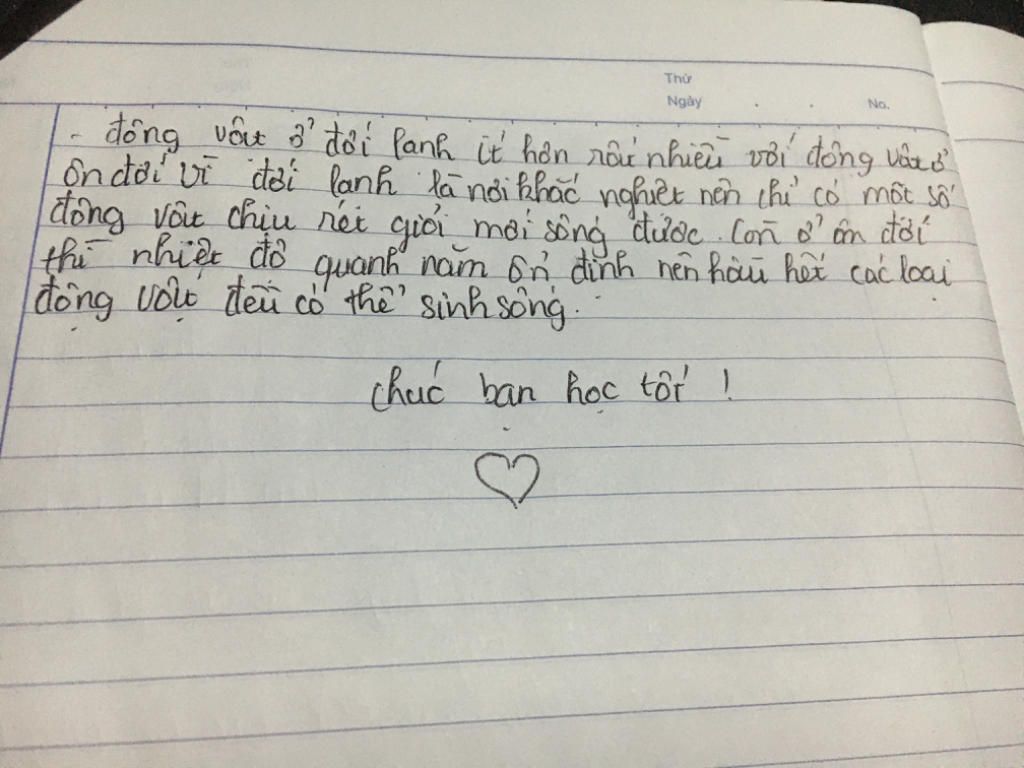 Thứ
Ngày . . No.
- động vật ở đới lạnh ít hơn rất nhiều với động vật ở
ôn đới vì đới lạnh là nơi khắc nghiệt nên chỉ có một số
động vật chịu rét giỏi mới sống được. Còn ở ôn đới
thì nhiệt độ quanh năm ổn định nên hầu hết các loại
động vật đều có thể sinh sống.
chúc bạn học tốt !